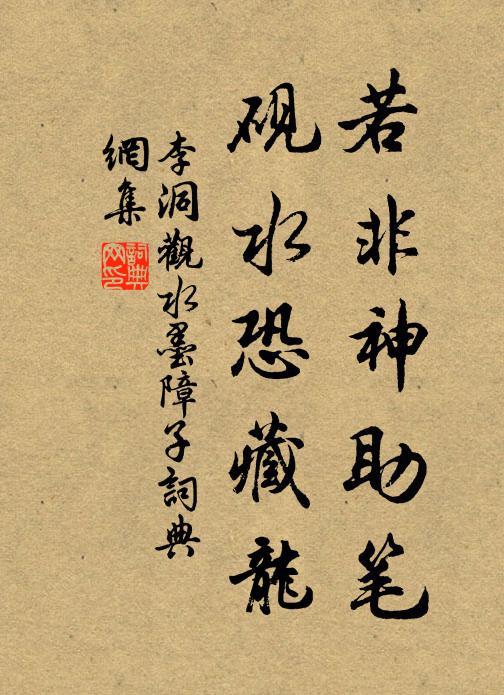 若非神助笔
硯水恐藏龍
李洞觀水墨障子詞典
網集
詞典
网印